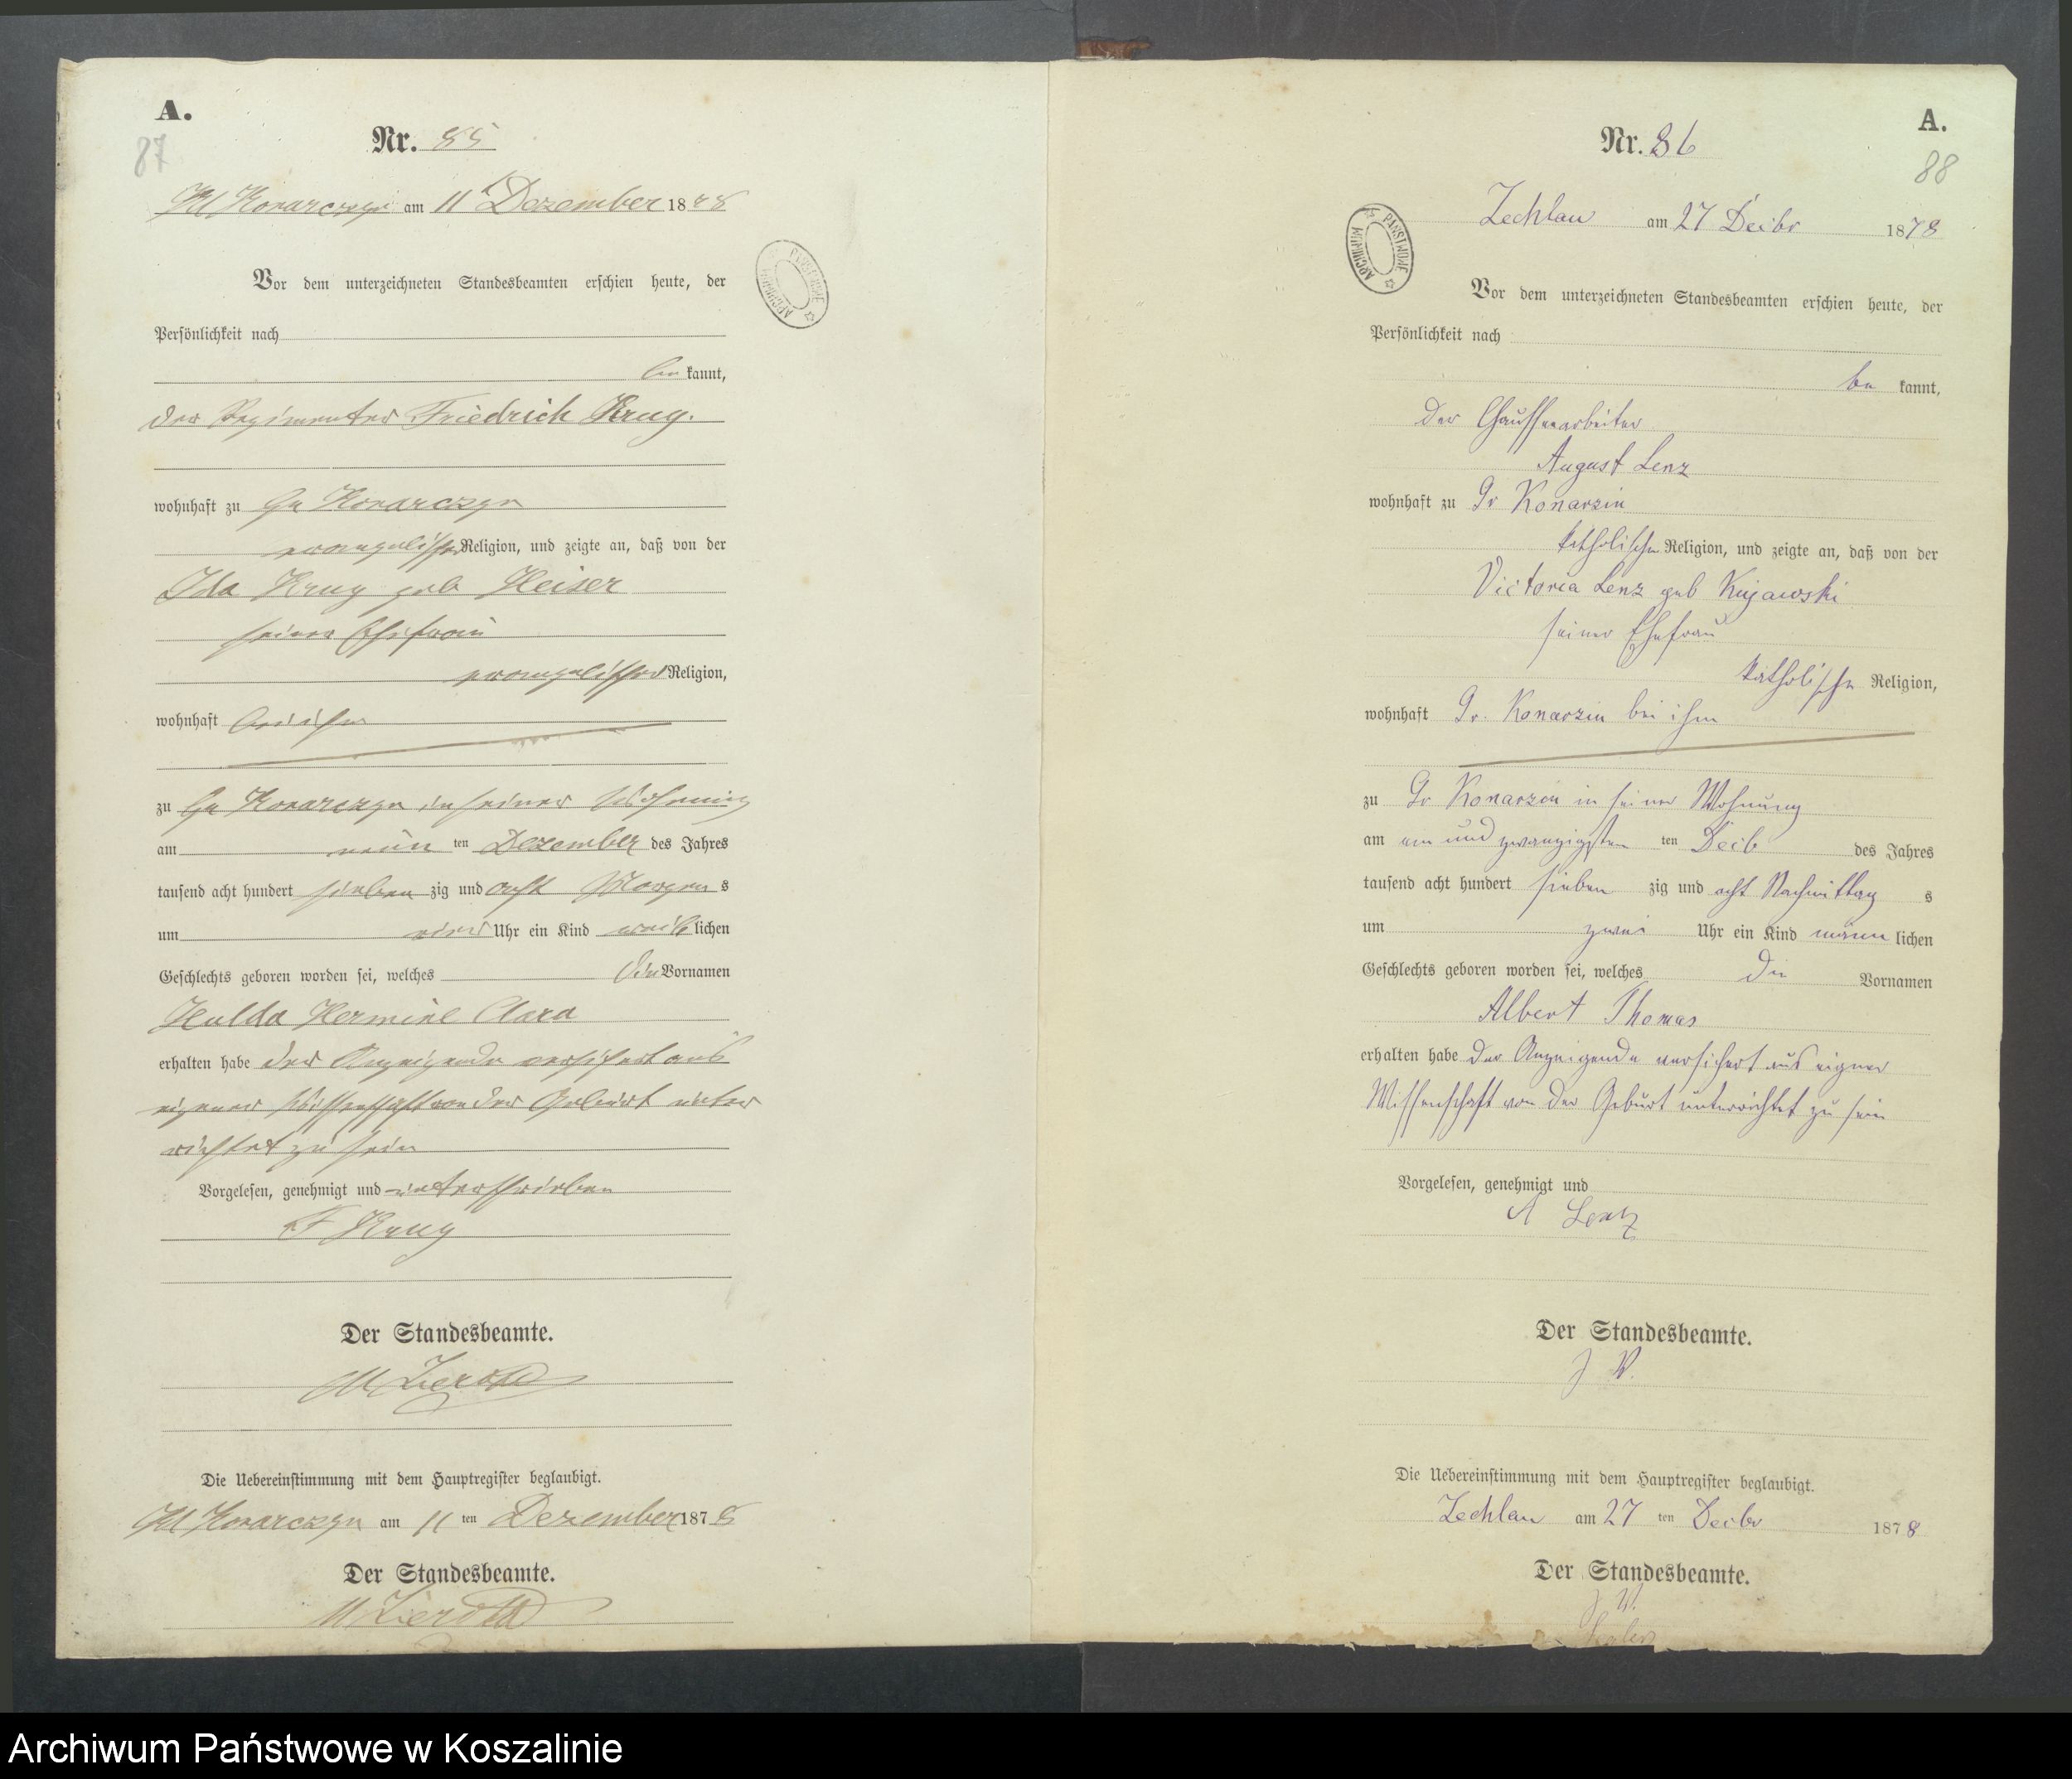 A.
87
Nr. 85
Kl Konarczyn am 11 Dezember 1878
Vor dem unterzeichneten Standesbeamten erschien heute, der
Persönlichkeit nach
be kannt,
der Regimenter Friedrich Krug.
wohnhaft zu Gr Konarczyn
evangelischer Religion, und zeigte an, daß von der
Ida Krug geb Heiser
seiner Ehefrau
evangelischer Religion,
wohnhaft bei ihm
zu Gr Konarczyn in seiner Wohnung
am neun ten Dezember des Jahres
tausend acht hundert sieben zig und acht Morgen s
um vier Uhr ein Kind weib lichen
Geschlechts geboren worden sei, welches die Vornamen
Hulda Hermine Clara
erhalten habe der Anzeigende versichert aus
eigener Wissenschaft von der Geburt unter
richtet zu sein
Vorgelesen, genehmigt und unterschrieben
F Krug
Der Standesbeamte.
Die Uebereinstimmung mit dem Hauptregister beglaubigt.
Kl Konarczyn am 11 ten Dezember 1878
Der Standesbeamte.
A.
88
Nr. 86
Zechlau am 27 Decbr 1878
ARCHIWUM PAŃSTWOWE
Vor dem unterzeichneten Standesbeamten erschien heute, der
Persönlichkeit nach
be kannt,
der Chausseearbeiter
August Lenz
wohnhaft zu Gr Konarzin
katholischen Religion, und zeigte an, daß von der
Victoria Lenz geb Kujawski
seiner Ehefrau
katholische Religion,
wohnhaft Gr. Konarzin bei ihm
zu Gr Konarzin in seiner Wohnung
am ein und zwanzigsten ten Decb des Jahres
tausend acht hundert sieben zig und acht Nachmittag s
um zwei Uhr ein Kind männ lichen
Geschlechts geboren worden sei, welches die Vornamen
Albert Thomas
erhalten habe der Anzeigende versichert aus eigner
Wissenschaft von der Geburt unterrichtet zu sein
Vorgelesen, genehmigt und
A Lenz
Der Standesbeamte.
J V.
Die Uebereinstimmung mit dem Hauptregister beglaubigt.
Zechlau am 27 ten Decbr 1878
Der Standesbeamte.
J V.
Archiwum Państwowe w Koszalinie